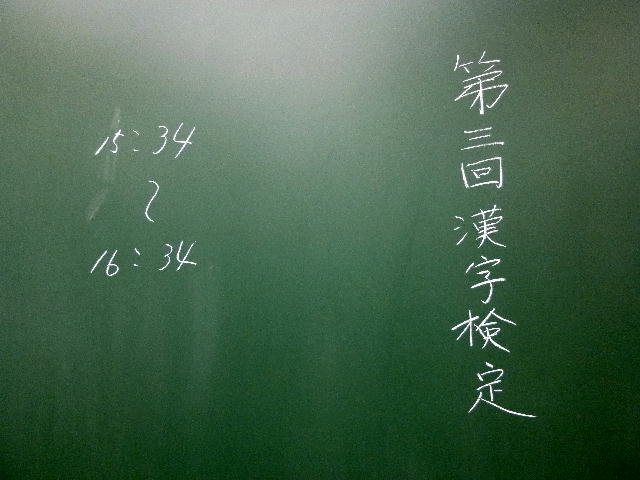 第三回漢字検定
15:34
〜
16:34